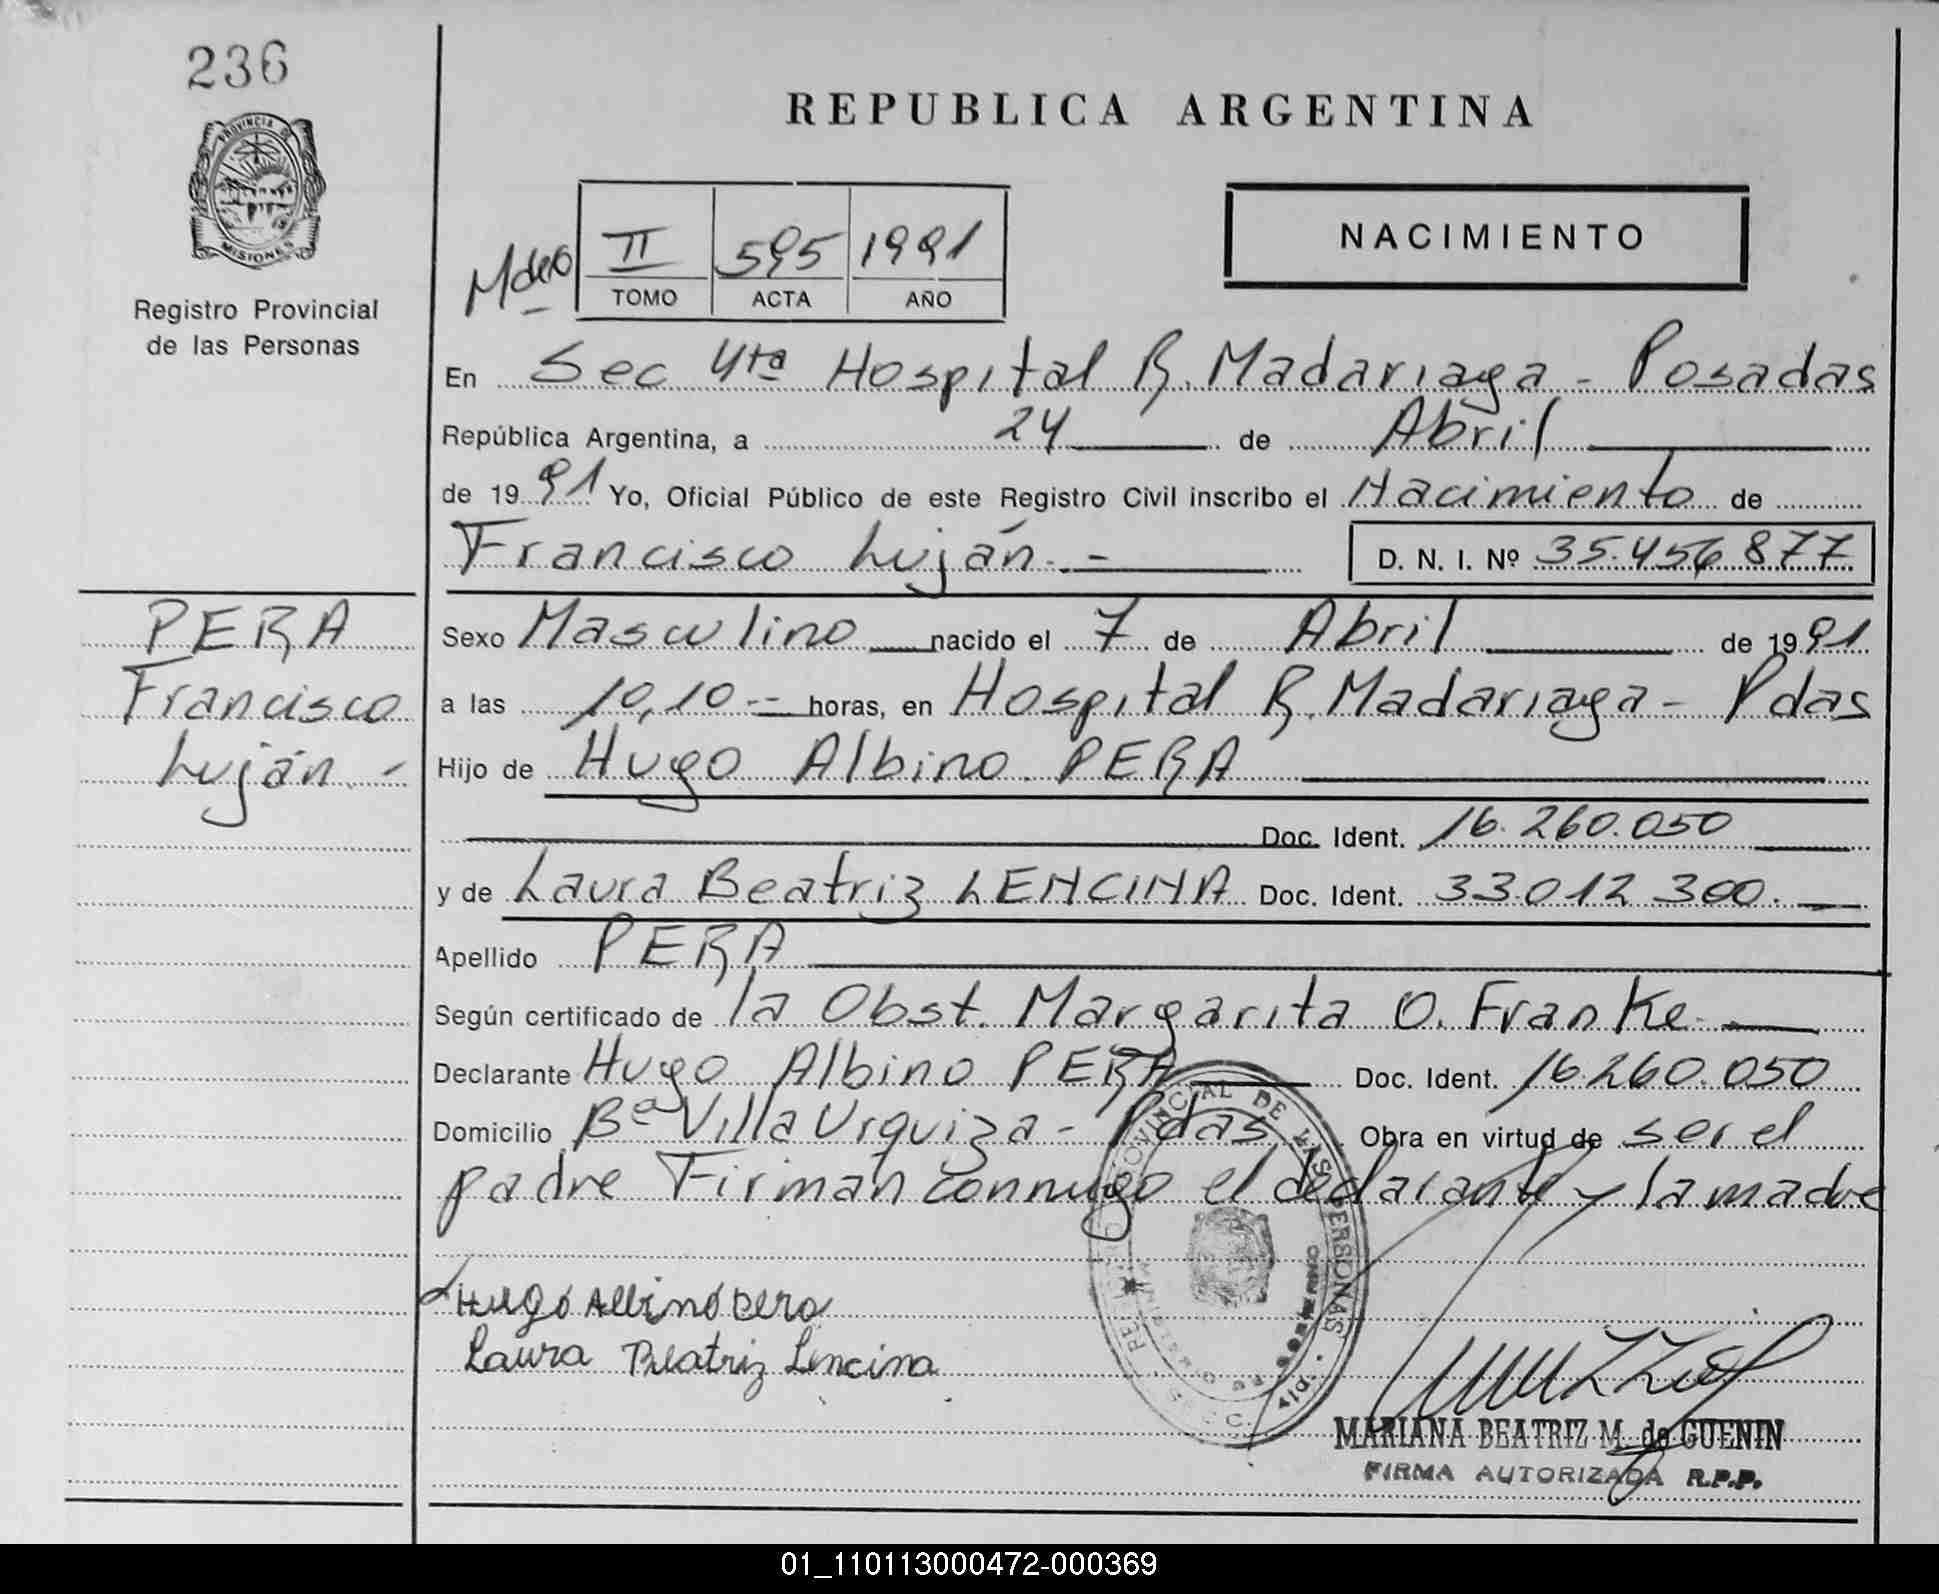 236
PROVINCIA DE
MISIONES
Registro Provincial
de las Personas
REPUBLICA ARGENTINA
NACIMIENTO
II 595 1991
TOMO ACTA AÑO
En Sec 4ta Hospital R. Madariaga - Posadas
República Argentina, a 24 de Abril
de 1991 Yo, Oficial Público de este Registro Civil inscribo el Nacimiento de
Francisco Luján.- D. N. I. Nº 35.456.877
PERA
Francisco
Luján -
Sexo Masculino nacido el 7 de Abril de 1991
a las 10,10 -- horas, en Hospital R. Madariaga - Pdas
Hijo de Hugo Albino PERA
Doc. Ident. 16.260.050
y de Laura Beatriz LENCINA Doc. Ident. 33.012.300.
Apellido PERA
Según certificado de la Obst. Margarita O. Franke
Declarante Hugo Albino PERA Doc. Ident. 16.260.050
Domicilio Bº Villa Urquiza - Pdas Obra en virtud de ser el
padre Firman conmigo el declarante y la madre
Hugo Albino Pera
Laura Beatriz Lencina
PROVINCIAL DE LAS PERSONAS
MARIANA BEATRIZ M. de GUENIN
FIRMA AUTORIZADA R.P.P.
01_110113000472-000369